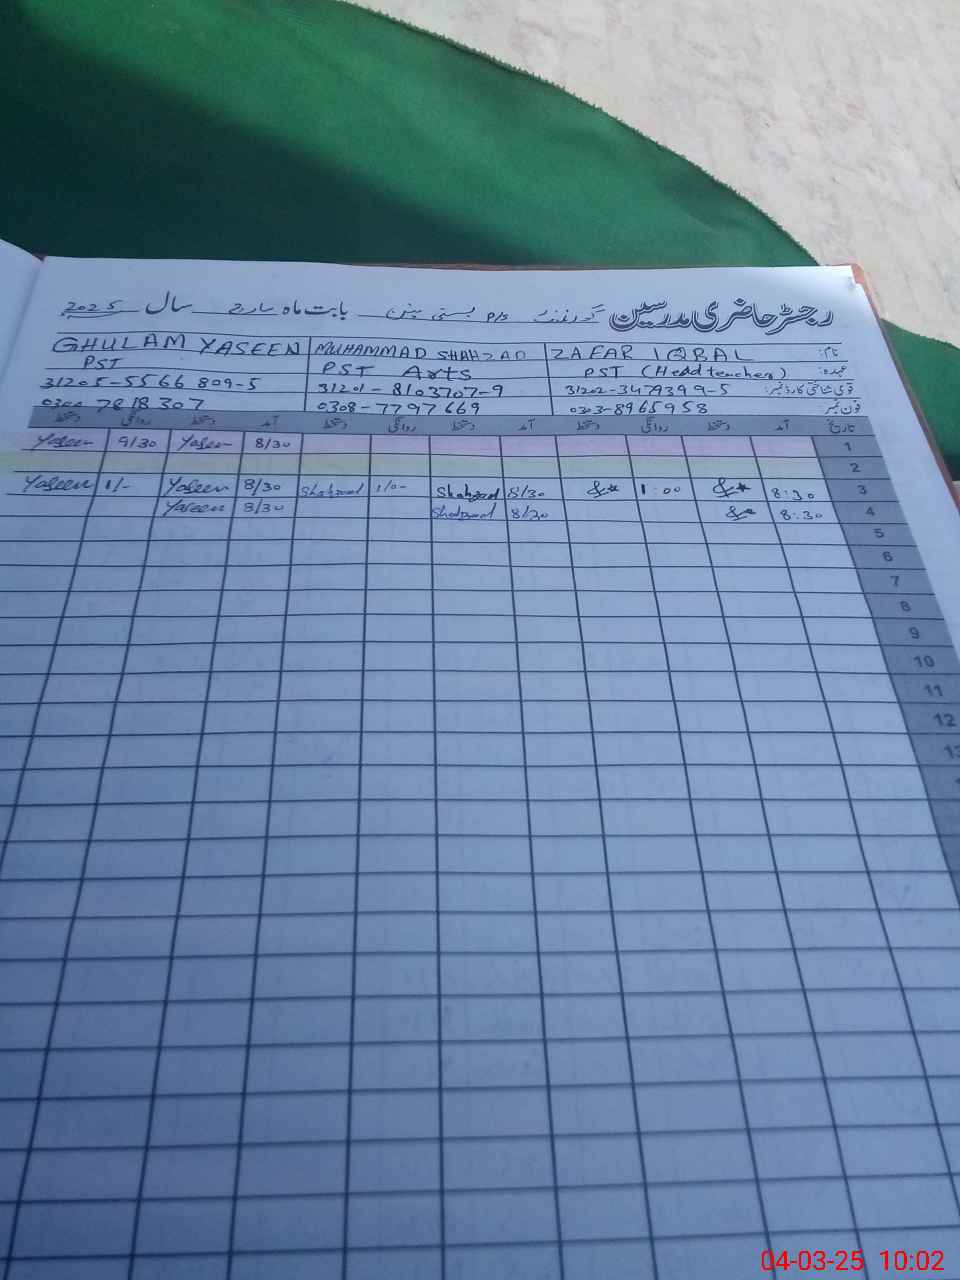 رجسٹر حاضری مدرسین گورنمنٹ P/S بستی بابت ماہ مارچ سال 2025
نام: ZAFAR IQBAL MUHAMMAD SHAHZAD GHULAM YASEEN
عہدہ: PST (Head teacher) PST Arts PST
قومی شناختی کارڈ نمبر: 31202-3479399-5 31201-8103707-9 31205-5566809-5
فون نمبر: 0303-8965958 0308-7797669 7818307
تاریخ آمد دستخط روانگی دستخط آمد دستخط روانگی دستخط آمد دستخط روانگی دستخط
1 8/30 Yaseen 9/30 Yaseen
2
3 8:30 1:00 8/30 Shahzad 1/0- Shahzad 8/30 Yaseen 1/- Yaseen
4 8:30 8/30 Shahzad 8/30 Yaseen
5
6
7
8
9
10
11
12
13
04-03-25 10:02